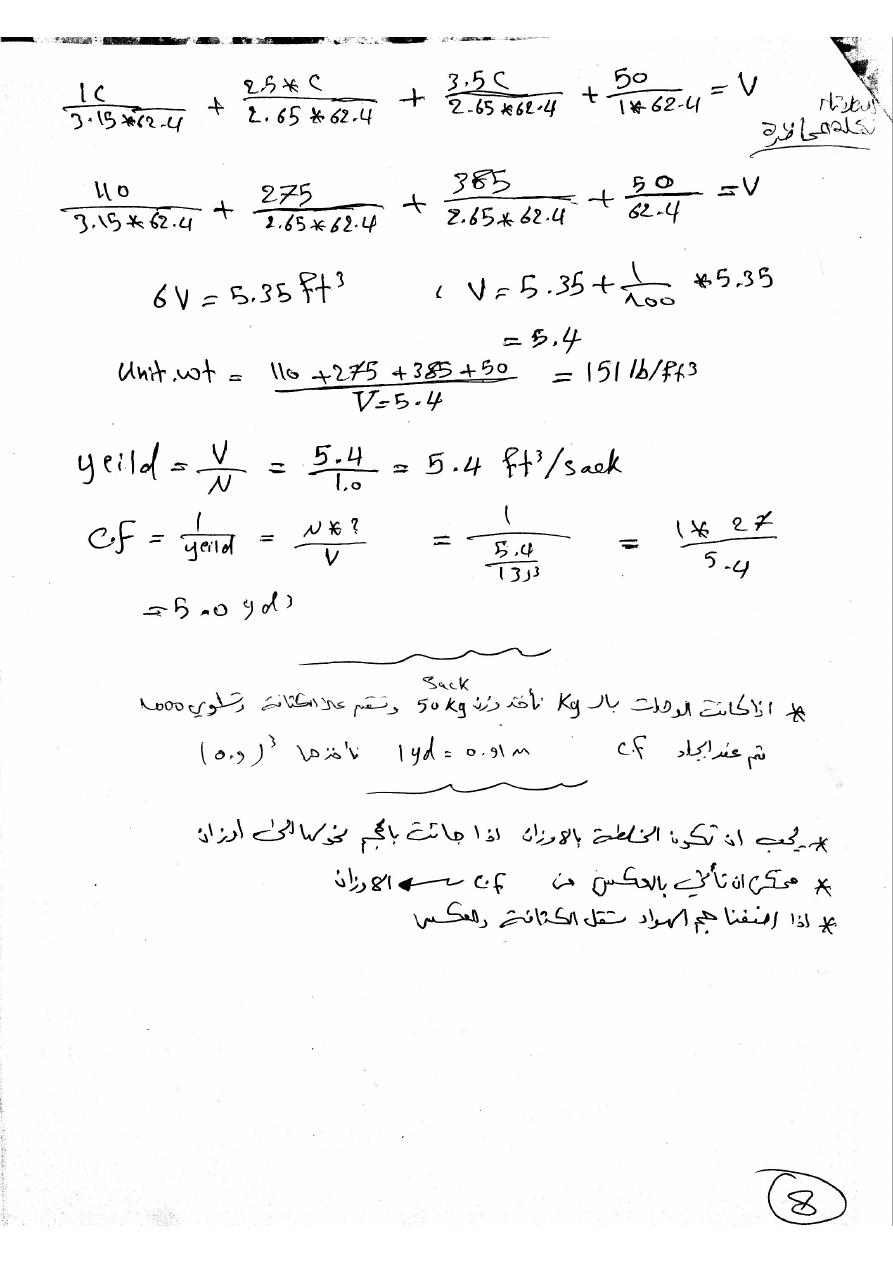 1C / 3.15*62.4 + 2.5*C / 2.65*62.4 + 3.5C / 2.65*62.4 + 50 / 1*62.4 = V
110 / 3.15*62.4 + 275 / 2.65*62.4 + 385 / 2.65*62.4 + 50 / 62.4 = V
6V = 5.35 ft³ ، V = 5.35 + 1/100 *5.35
= 5.4
Unit.wt = 110 +275 +385 +50 / V=5.4 = 151 lb/ft³
yeild = V/N = 5.4/1.0 = 5.4 ft³/sack
CF = 1/yeild = N*?/V = 1 / 5.4/ = 1* 27 / 5.4
= 5.0 yd³
Sack
* اذا كانت الوحدات بالـ Kg نأخذ وزن 50kg ونقسم على الكثافة وتساوي 1000
ثم عند ايجاد C.F 1yd = 0.91m نأخذها (0.9)³
* يجب ان تكون الخلطة بالاوزان اذا جائت بالحجم نحولها الى أوزان
* ممكن ان تأتي بالعكس من CF ← الاوزان
* اذا اضفنا حجم المواد تقل الكثافة والعكس
8